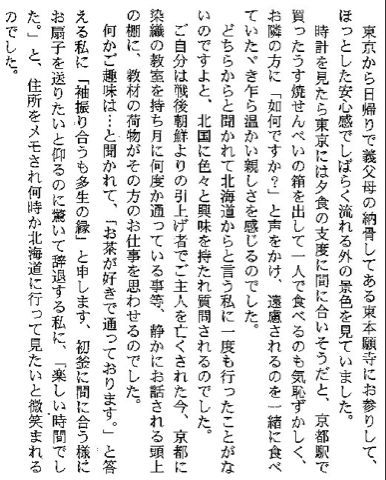 東京から日帰りで義父母の納骨してある東本願寺にお参りして、
ほっとした安心感でしばらく流れる外の景色を見ていました。
時計を見たら東京には夕食の支度に間に合いそうだと、京都駅で
買ったうす焼せんべいの箱を出して一人で食べるのも気恥ずかしく、
お隣の方に「如何ですか?」と声をかけ、遠慮されるのを一緒に食べ
ていたゞき乍ら温かい親しさを感じるのでした。
どちらからと聞かれて北海道からと言う私に一度も行ったことがな
いのですよと、北国に色々と興味を持たれ質問されるのでした。
ご自分は戦後朝鮮よりの引上げ者でご主人を亡くされた今、京都に
染織の教室を持ち月に何度か通っている事等、静かにお話される頭上
の棚に、教材の荷物がその方のお仕事を思わせるのでした。
何かご趣味は…と聞かれて、「お茶が好きで通っております。」と答
える私に「袖振り合うも多生の縁」と申します、初釜に間に合う様に
お扇子を送りたいと仰るのに驚いて辞退する私に、「楽しい時間でし
た。」と、住所をメモされ何時か北海道に行って見たいと微笑まれる
のでした。